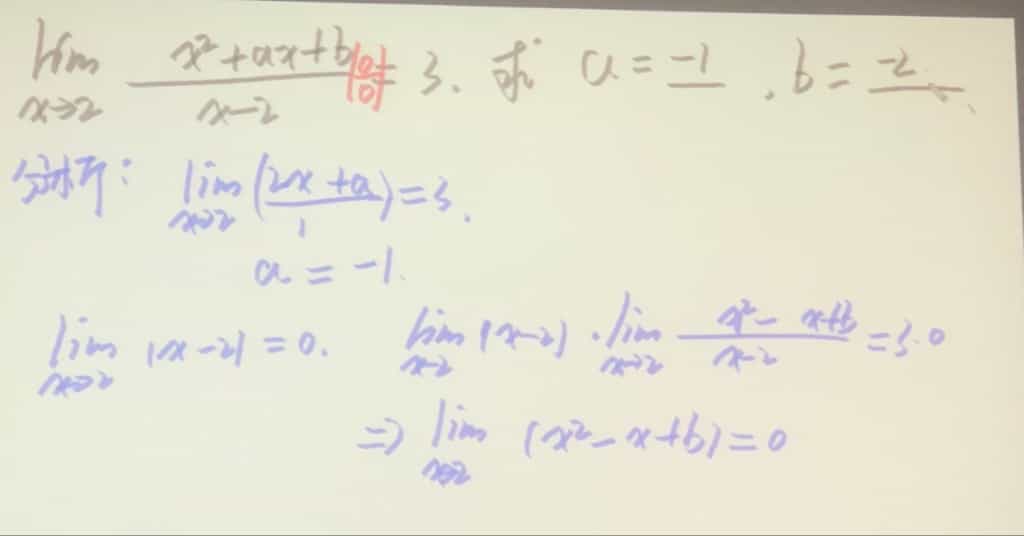 lim x→2 (x²+ax+b)/(x-2) (0/0) = 3. 求 a = -1 . b = -2
分析: lim x→2 (2x+a)/1 = 3.
a = -1.
lim x→2 (x-2) = 0. lim x→2 (x-2) · lim x→2 (x²-x+b)/(x-2) = 3·0
⇒ lim x→2 (x²-x+b) = 0